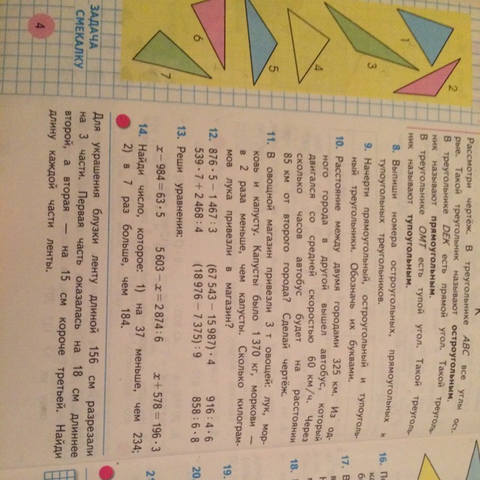 Рассмотри чертёж. В треугольнике ABC все углы
рые. Такой треугольник называют остроугольным.
В треугольнике DEK есть прямой угол. Такой треуголь-
ник называют прямоугольным.
В треугольнике OMT есть тупой угол. Такой треуголь-
ник называют тупоугольным.
8. Выпиши номера остроугольных, прямоугольных и
тупоугольных треугольников.
9. Начерти прямоугольный, остроугольный и тупоуголь-
ный треугольники. Обозначь их буквами.
10. Расстояние между двумя городами 325 км. Из од-
ного города в другой вышел автобус, который
двигался со средней скоростью 60 км/ч. Через
сколько часов автобус будет на расстоянии
85 км от второго города? Сделай чертёж.
11. В овощной магазин привезли 3 т овощей: лук, мор-
ковь и капусту. Капусты было 1 370 кг, моркови —
в 2 раза меньше, чем капусты. Сколько килограм-
мов лука привезли в магазин?
12. 876 · 5 − 1 467 : 3 (67 543 − 15 987) · 4 916 : 4 · 6
539 · 7 + 2 468 : 4 (18 976 − 7 375) · 9 858 : 6 · 8
13. Реши уравнения:
x − 984 = 63 · 5 5 603 − x = 2 874 : 6 x + 578 = 196 · 3
14. Найди число, которое: 1) на 37 меньше, чем 234;
2) в 7 раз больше, чем 184.
Для украшения блузки ленту длиной 156 см разрезали
на 3 части. Первая часть оказалась на 18 см длиннее
второй, а вторая — на 15 см короче третьей. Найди
длину каждой части ленты.
ЗАДАЧА
СМЕКАЛКУ
4
1
2
3
4
5
6
7
16.
17.
18.
19.
20